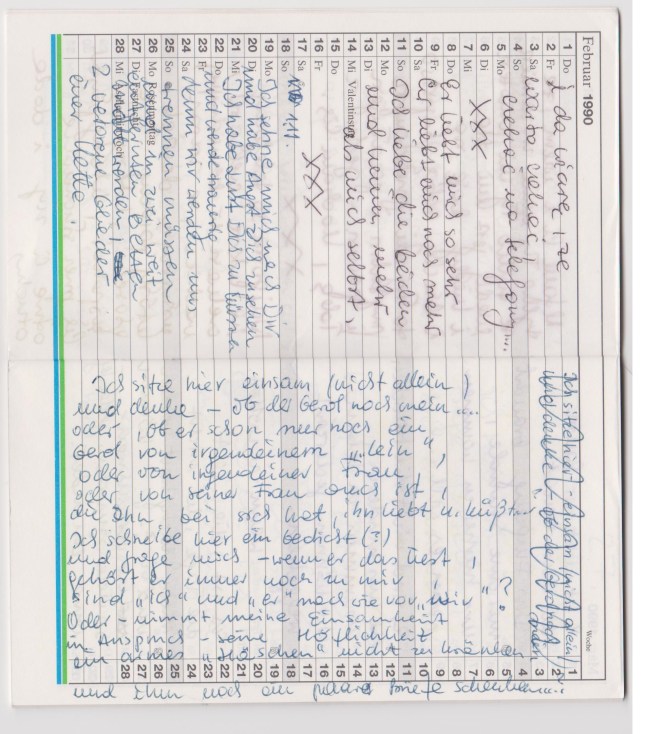 Februar 1990
1 Do
2 Fr
3 Sa
4 So
5 Mo
6 Di
7 Mi
8 Do
9 Fr
10 Sa
11 So
12 Mo
13 Di
14 Mi Valentinstag
15 Do
16 Fr
17 Sa
18 So
19 Mo
20 Di
21 Mi
22 Do
23 Fr
24 Sa
25 So
26 Mo Rosenmontag
27 Di
28 Mi
i da wiarę, że
warto czekać!
czekać na telefony...
XXX
Er liebt mich so sehr
Er liebt mich noch mehr
Ich liebe die beiden
und keinen mehr
als mich selbst,
XXX
Ich sehne mich nach Dir
und habe Angst Dich zu sehen
Ich habe Lust Dich zu küssen
und werde traurig
denn wir werden uns
trennen müssen
und in zwei weit
Betten
werden,
2 verlorene Glieder
einer Kette!
Woche
Ich sitze hier - einsam (nicht allein)
und denke - ob der Gerd noch
Ich sitze hier einsam (nicht allein)
und denke - ob der Gerd noch mein....
oder, ob er schon nur noch ein
Gerd von irgendeinem "lein",
oder von irgendeiner Frau
oder von seiner Frau auch ist,
die ihn bei sich hat, ihn liebt u. küßt
Ich schreibe hier ein Gedicht (?)
und frage mich - wenn er das liest,
gehört er immer noch zu mir,
sind "ich" und "er" nach wie vor "wir"?
Oder - nimmt meine Einsamheit
in Anspruch - seine Höflichkeit
ein armes "Häschen" nicht zu kränken
und ihm noch ein paar Briefe schenken....?
1
2
3
4
5
6
7
8
9
10
11
12
13
14
15
16
17
18
19
20
21
22
23
24
25
26
27
28